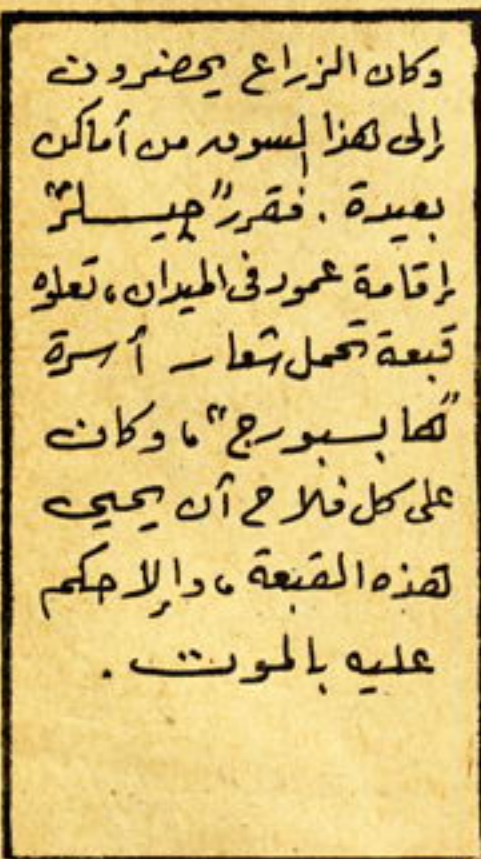 وكان الزراع يحضرون
إلى هذا السوق من أماكن
بعيدة . فقرر "چيسلر"
إقامة عمود فى الميدان ، تعلوه
قبعة تحمل شعار أسرة
"هابسبورج" ، وكان
على كل فلاح أن يحيى
هذه القبعة ، وإلا حكم
عليه بالموت .